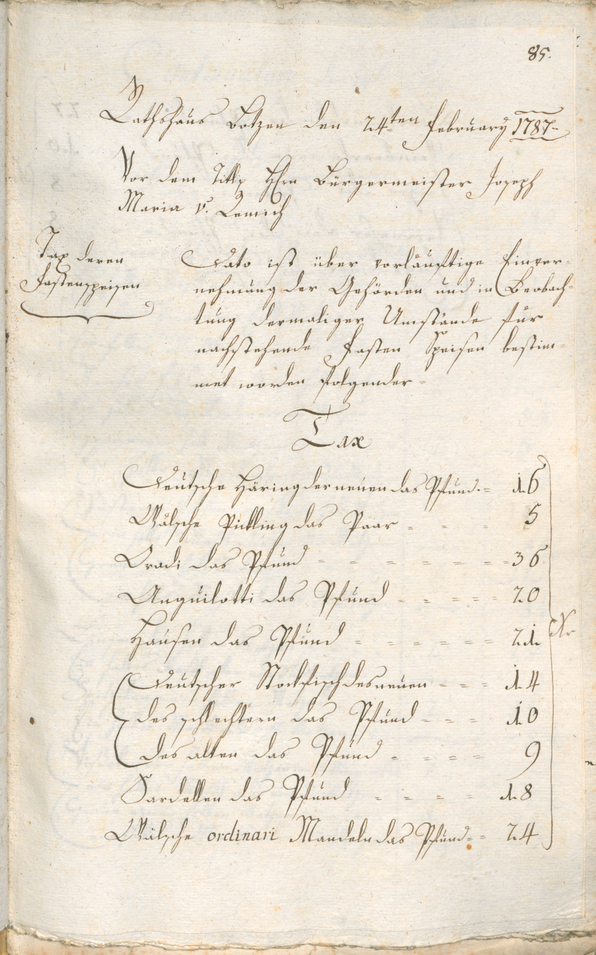 85.
Rathshaus Botzen den 24ten February 1787
Vor dem Titl. Hrn Bürgermeister Joseph
Maria v. Zemich
Tax deren
Fastenspeisen
Dato ist über vorläuftige Einver-
nehmung der Gehörden und in Beobach-
tung dermaliger Umstände für
nachstehende Fasten Speisen bestim-
met worden folgender
Tax
Deutsche Häring der neuen das Pfund 16
Wälsche Pickling das Paar 5
Oradi das Pfund 36
Anguilotti das Pfund 20
Hausen das Pfund 21
Deutscher Stockfisch des neuen 14
des schlechtern das Pfund 10
des alten das Pfund 9
Sardellen das Pfund 18
Wälsche ordinari Mandeln das Pfund 24
Xr